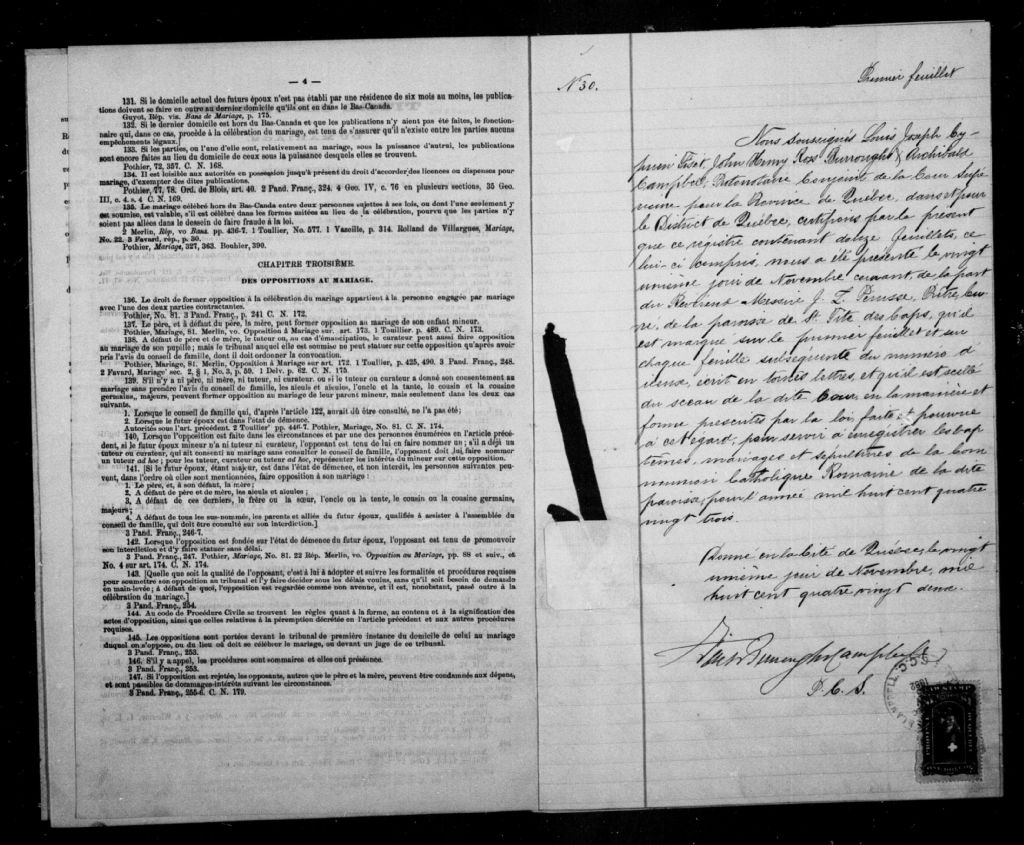 — 4 —
131. Si le domicile actuel des futurs époux n'est pas établi par une résidence de six mois au moins, les publica-
tions doivent se faire en outre au dernier domicile qu'ils ont eu dans le Bas-Canada.
Guyot, Rép. vis. Bans de Mariage, p. 175.
132. Si le dernier domicile est hors du Bas-Canada et que les publications n'y aient pas été faites, le fonction-
naire qui, dans ce cas, procède à la célébration du mariage, est tenu de s'assurer qu'il n'existe entre les parties aucuns
empêchements légaux.]
133. Si les parties, ou l'une d'elle sont, relativement au mariage, sous la puissance d'autrui, les publications
sont encore faites au lieu du domicile de ceux sous la puissance desquels elles se trouvent.
Pothier, 72, 357. C. N. 168.
134. Il est loisible aux autorités en possession jusqu'à présent du droit d'accorder des licences ou dispenses pour
mariage, d'exempter des dites publications.
Pothier, 77, 78. Ord. de Blois, art. 40. 2 Pand. Franç., 324. 4 Geo. IV, c. 76 en plusieurs sections, 35 Geo.
III, c. 4. s. 4 C. N. 169.
135. Le mariage célébré hors du Bas-Canada entre deux personnes sujettes à ses lois, ou dont l'une seulement y
est soumise, est valable, s'il est célébré dans les formes usitées au lieu de la célébration, pourvu que les parties n'y
soient pas allées dans le dessein de faire fraude à la loi.
2 Merlin, Rép, vo Bans. pp. 436-7. 1 Toullier, No. 577. 1 Vazeille, p. 314. Rolland de Villargues, Mariage,
No. 22. 3 Favard, rép., p. 30.
Pothier, Mariage, 327, 363. Bouhier, 390.
CHAPITRE TROISIÈME.
DES OPPOSITIONS AU MARIAGE.
136. Le droit de former opposition à la célébration du mariage appartient à la personne engagée par mariage
avec l'une des deux parties contractantes.
Pothier, No. 81. 3 Pand. Franç., p. 241 C. N. 172.
137. Le père, et à défaut du père, la mère, peut former opposition au mariage de son enfant mineur.
Pothier, Mariage, 81. Merlin, vo. Opposition à Mariage sur. art. 173. 1 Touillier. p. 489. C. N. 173.
138. A défaut de père et de mère, le tuteur ou, au cas d'émancipation, le curateur peut aussi faire opposition
au mariage de son pupille; mais le tribunal auquel elle est soumise ne peut statuer sur cette opposition qu'après avoir
pris l'avis du conseil de famille, dont il doit ordonner la convocation.
Pothier, Mariage, 81. Merlin, Opposition à Mariage sur art., 172. 1 Toullier, p. 425, 490. 3 Pand. Franç., 248.
2 Favard, Mariage' sec. 2, § 1, No. 3, p. 59. 1 Delv. p. 62. C. N. 175.
139. S'il n'y a ni père, ni mère, ni tuteur, ni curateur, ou si le tuteur ou curateur a donné son consentement au
mariage sans prendre l'avis du conseil de famille, les aieuls et aieules, l'oncle et la tante, le cousin et la cousine
germains, majeurs, peuvent former opposition au mariage de leur parent mineur, mais seulement dans les deux cas
suivants.
1. Lorsque le conseil de famille qui, d'après l'article 122, aurait dû être consulté, ne l'a pas été;
2. Lorsque le futur époux est dans l'état de démence.
Autorités sous l'art. précédent. 2 Touiller' pp. 446-7. Pothier, Mariage, No. 81. C. N. 174.
140. Lorsque l'opposition est faite dans les circonstances et par une des personnes énumérées en l'article précé-
dent, si le futur époux mineur n'a ni tuteur ni curateur, l'opposant est tenu de lui en faire nommer un; s'il a déjà un
tuteur ou curateur, qui ait consenti au mariage sans consulter le conseil de famille, l'opposant doit lui faire nommer
un tuteur ad hoc; pour les tuteur, curateur ou tuteur ad hoc, représenter les intérêts du mineur sur cette opposition.
141. [Si le futur époux, étant majeur, est dans l'état de démence, et non interdit, les personnes suivantes peu-
vent, dans l'ordre où elles sont mentionnées, faire opposition à son mariage:
1. Le père, et, à son défaut, la mère;
2. A défaut de père et de mère, les aieuls et aieules;
3. A défaut de ces derniers, le frère ou la sœur, l'oncle ou la tante, le cousin ou la cousine germains,
majeurs;
4. A défaut de tous les sus-nommés, les parents et alliés du futur époux, qualifiés à assister à l'assemblée du
conseil de famille, qui doit être consulté sur son interdiction.]
3 Pand. Franç., 246-7.
142. Lorsque l'opposition est fondée sur l'état de démence du futur époux, l'opposant est tenu de promouvoir
son interdiction et d'y faire statuer sans délai.
3 Pand. Franç., 247. Pothier, Mariage, No. 81. 22 Rép. Merlin, vo. Opposition au Mariage, pp. 88 et suiv., et
No. 4 sur art. 174. C. N. 174.
143. [Quelle que soit la qualité de l'opposant, c'est à lui à adopter et suivre les formalités et procédures requises
pour soumettre son opposition au tribunal et l'y faire décider sous les délais voulus, sans qu'il soit besoin de demande
en main-levée; à défaut de quoi, l'opposition est regardée comme non avenue, et il est, nonobstant, passé outre à la
célébration du mariage.]
3 Pand. Franç., 254.
144. Au code de Procédure Civile se trouvent les règles quant à la forme, au contenu et à la signification des
actes d'opposition, ainsi que celles relatives à la péremption décrétée en l'article précédent et aux autres procédures
requises.
145. Les oppositions sont portées devant le tribunal de première instance du domicile de celui au mariage
duquel on s'oppose, ou du lieu où doit se célébrer le mariage, ou devant un juge de ce tribunal.
3 Pand. Franç., 253.
146. S'il y a appel, les procédures sont sommaires et elles ont préséance.
3 Pand. Franç., 253.
147. Si l'opposition est rejetée, les opposants, autres que le père et la mère, peuvent être condamnés aux dépens,
et sont passibles de dommages-intérêts suivant les circonstances.
3 Pand. Franç., 255-6. C. N. 179.
N° 30.
Premier feuillet
Nous soussignés Louis Joseph Cy-
prien Fiset, John Henry Ross Burroughs & Archibald
Campbell, Protonotaire Conjoint de la Cour Supé-
rieure pour la Province de Québec, dans et pour
le District de Québec, certifions par la présent
que ce régistre contenant douze feuillets, ce
lui-ci compris, nous a été présenté le vingt
unième jour de Novembre courant, de la part
du Révérend Messire J. T. Perusse, Prêtre, Cu-
ré, de la paroisse de St Tite des Caps, qu'il
est marqué sur le premier feuillet et sur
chaque feuille subséquente du numéro d'
iceux, écrit en toutes lettres, et qu'il est scellé
du sceau de la dite Cour, en la manière et
forme prescrites par la loi, faite et pourvue
à cet égard, pour servir à enregistrer les bap
têmes, mariages et sépultures de la Com
munion Catholique Romaine de la dite
paroisse, pour l'année mil huit cent quatre
vingt trois.
Donné en la Cité de Québec, le vingt
unième jour de Novembre, mil
huit cent quatre vingt deux.
Fiset Burroughs Campbell
P. C. S.
LAW STAMP